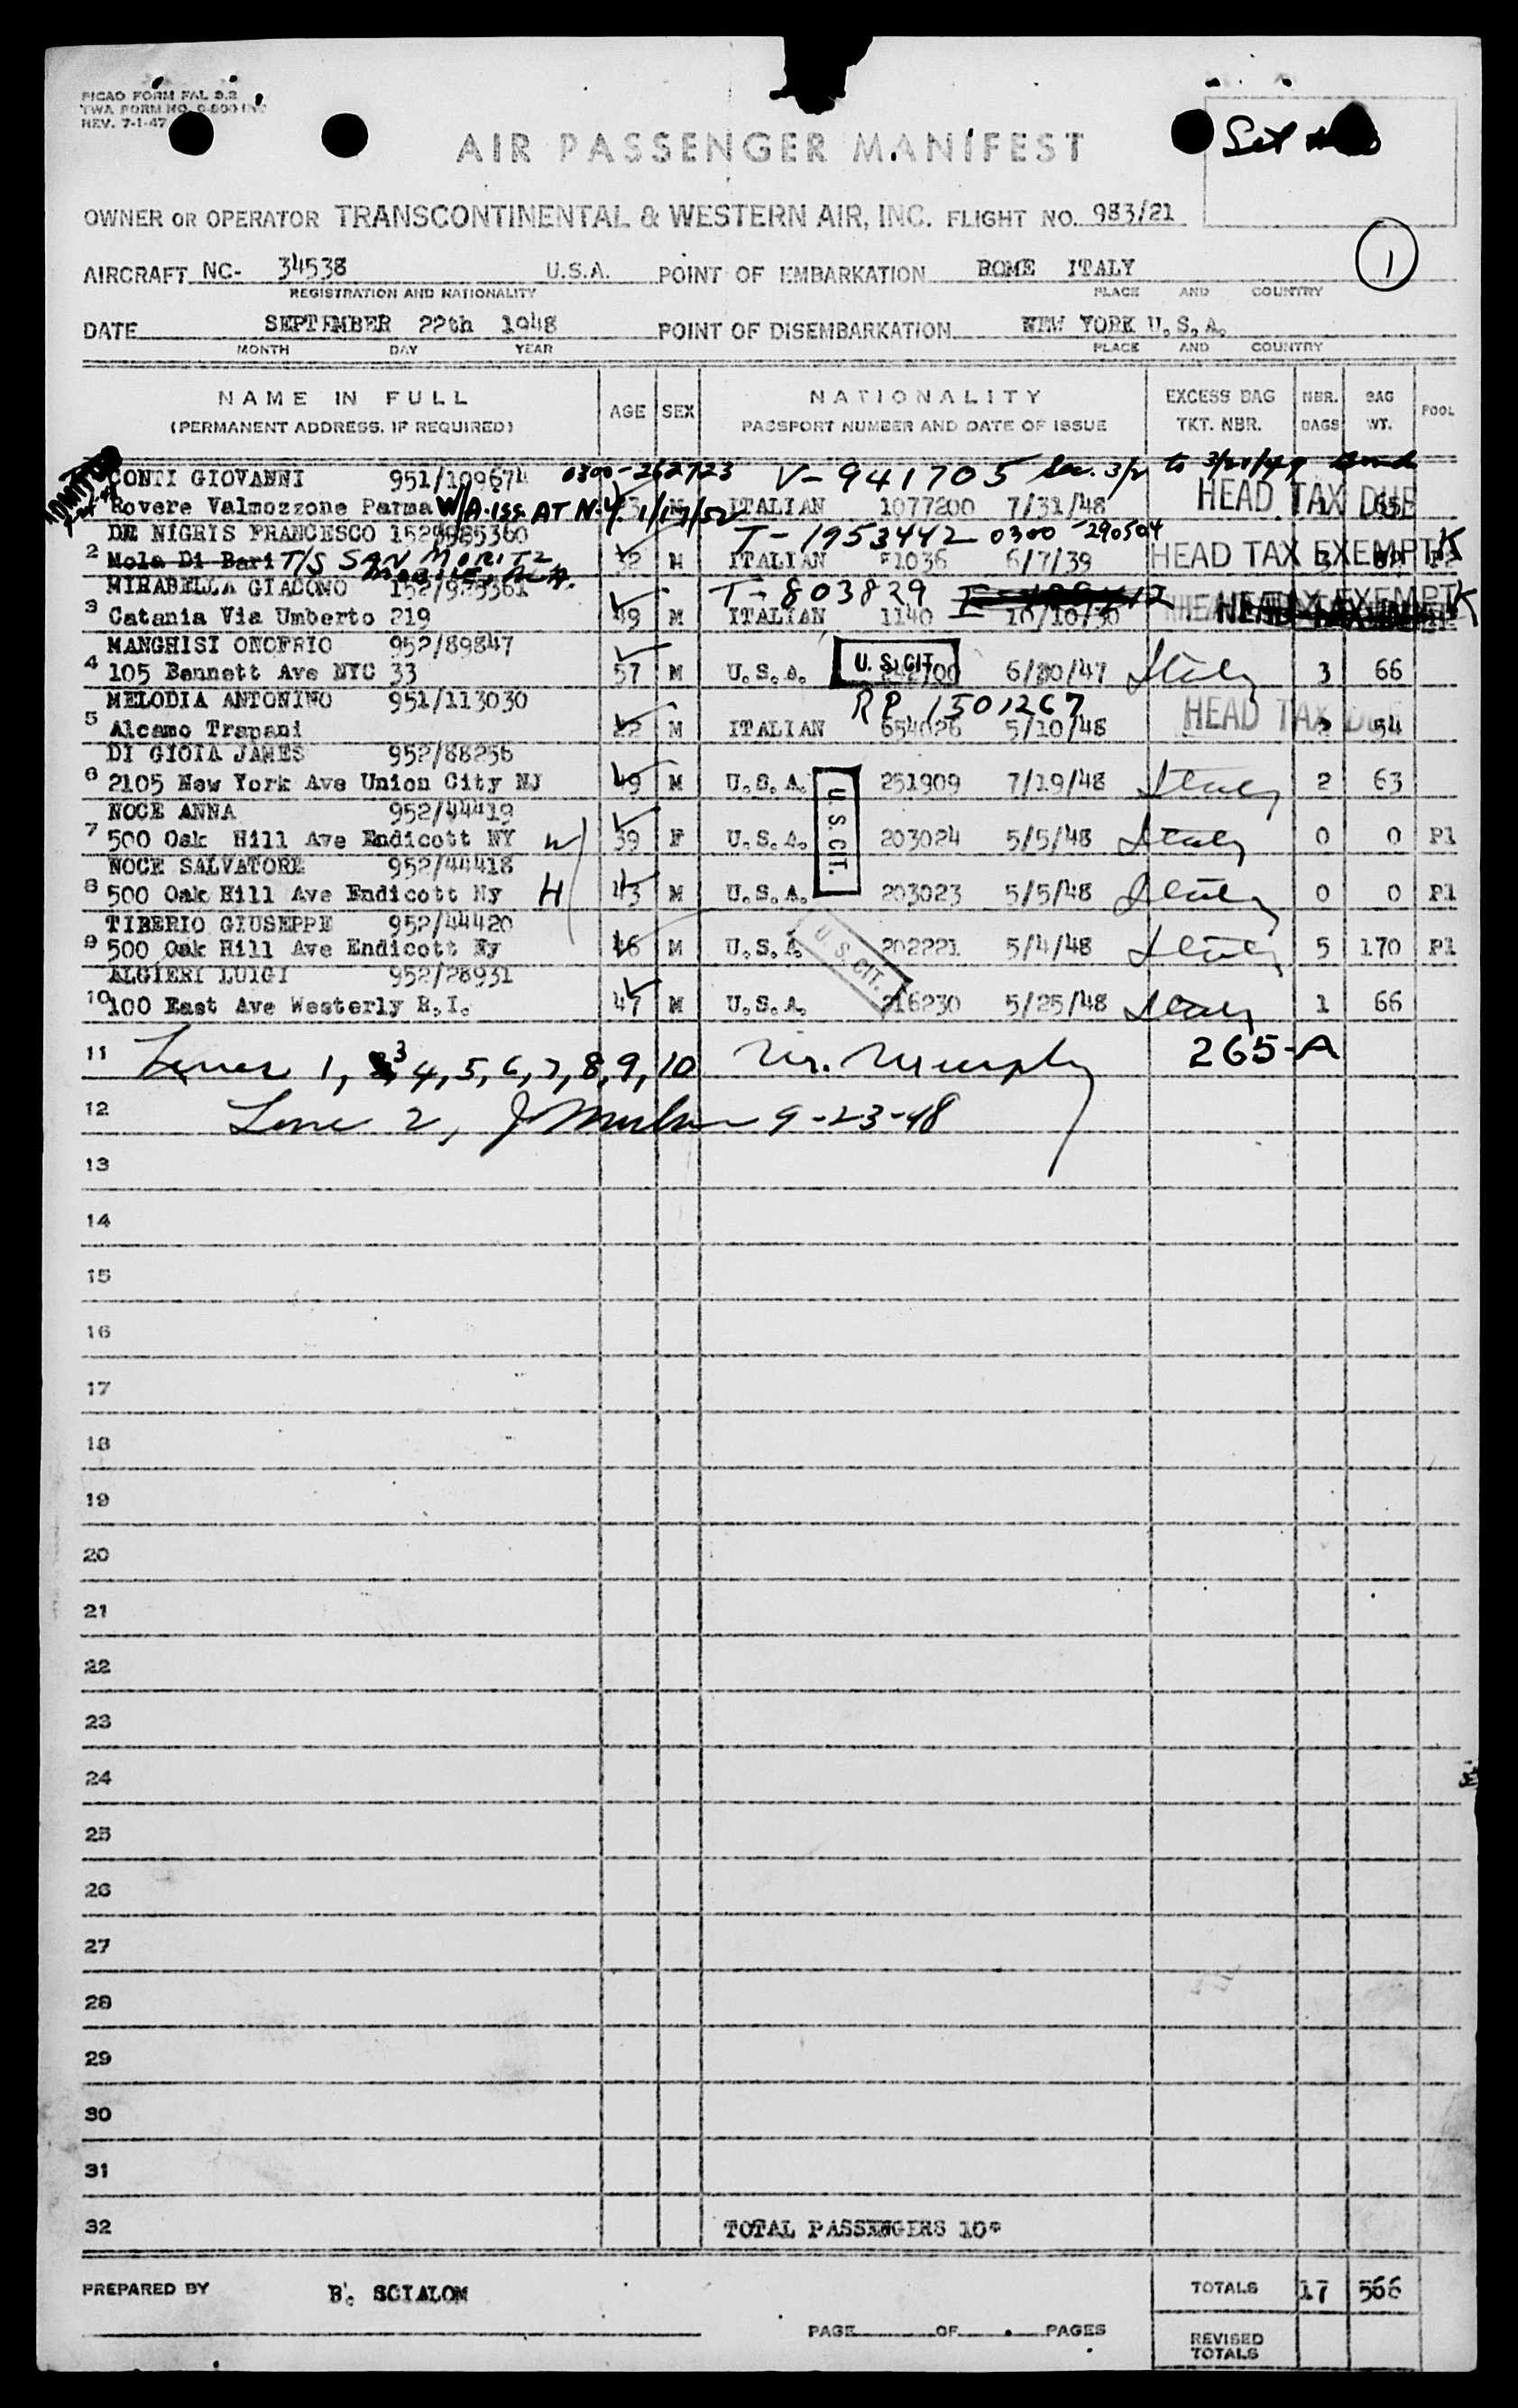 PICAO FORM FAL 9.2
TWA FORM NO.
REV. 7-1-47
AIR PASSENGER MANIFEST
OWNER OR OPERATOR TRANSCONTINENTAL & WESTERN AIR, INC. FLIGHT NO. 983/21
1
AIRCRAFT NC- 34538 U.S.A. POINT OF EMBARKATION ROME ITALY
REGISTRATION AND NATIONALITY PLACE AND COUNTRY
DATE SEPTEMBER 22th 1948 POINT OF DISEMBARKATION NEW YORK U.S.A.
MONTH DAY YEAR PLACE AND COUNTRY
NAME IN FULL AGE SEX NATIONALITY EXCESS BAG NBR. BAG POOL
(PERMANENT ADDRESS, IF REQUIRED) PASSPORT NUMBER AND DATE OF ISSUE TKT. NBR. BAGS WT.
CONTI GIOVANNI 951/109674 0300-262723 V-941705 Sec. 3/2 to
Rovere Valmozzone Parma W/A. iss AT N.Y. 1/17/52 M ITALIAN 1077200 7/31/48 HEAD TAX DUE
DE NIGRIS FRANCESCO T-1953442 0300-290504
2 Mola Di Bari T/S SAN MORITZ M ITALIAN 1036 6/7/39 HEAD TAX EXEMPT K
MOBILE, ALA.
MIRABELLA GIACOMO T-803829
3 Catania Via Umberto 219 49 M ITALIAN 1140 HEAD TAX EXEMPT K
MANGHISI ONOFRIO 952/89847
4 105 Bennett Ave NYC 33 57 M U.S.A. U.S. CIT. 6/20/47 Italy 3 66
MELODIA ANTONINO 951/113030 RP 1501267
5 Alcamo Trapani 22 M ITALIAN 654026 5/10/48 HEAD TAX DUE 2 54
DI GIOIA JAMES 952/88256
6 2105 New York Ave Union City NJ 49 M U.S.A. 251909 7/19/48 Italy 2 63
NOCE ANNA 952/44419
7 500 Oak Hill Ave Endicott NY W 39 F U.S.A. U.S. CIT. 203024 5/5/48 Italy 0 0 P1
NOCE SALVATORE 952/44418
8 500 Oak Hill Ave Endicott Ny H 43 M U.S.A. 203023 5/5/48 Italy 0 0 P1
TIBERIO GIUSEPPE 952/44420
9 500 Oak Hill Ave Endicott Ny 46 M U.S.A. U.S. CIT. 202221 5/4/48 Italy 5 170 P1
ALGIERI LUIGI 952/28931
10 100 East Ave Westerly R.I. 47 M U.S.A. 216230 5/25/48 Italy 1 66
11 Lines 1, 3, 4, 5, 6, 7, 8, 9, 10 Wm. Murphy 265-A
12 Line 2, 9-23-48
13
14
15
16
17
18
19
20
21
22
23
24
25
26
27
28
29
30
31
32 TOTAL PASSENGERS 10*
PREPARED BY B. SCIALOM TOTALS 17 566
PAGE OF PAGES
REVISED
TOTALS